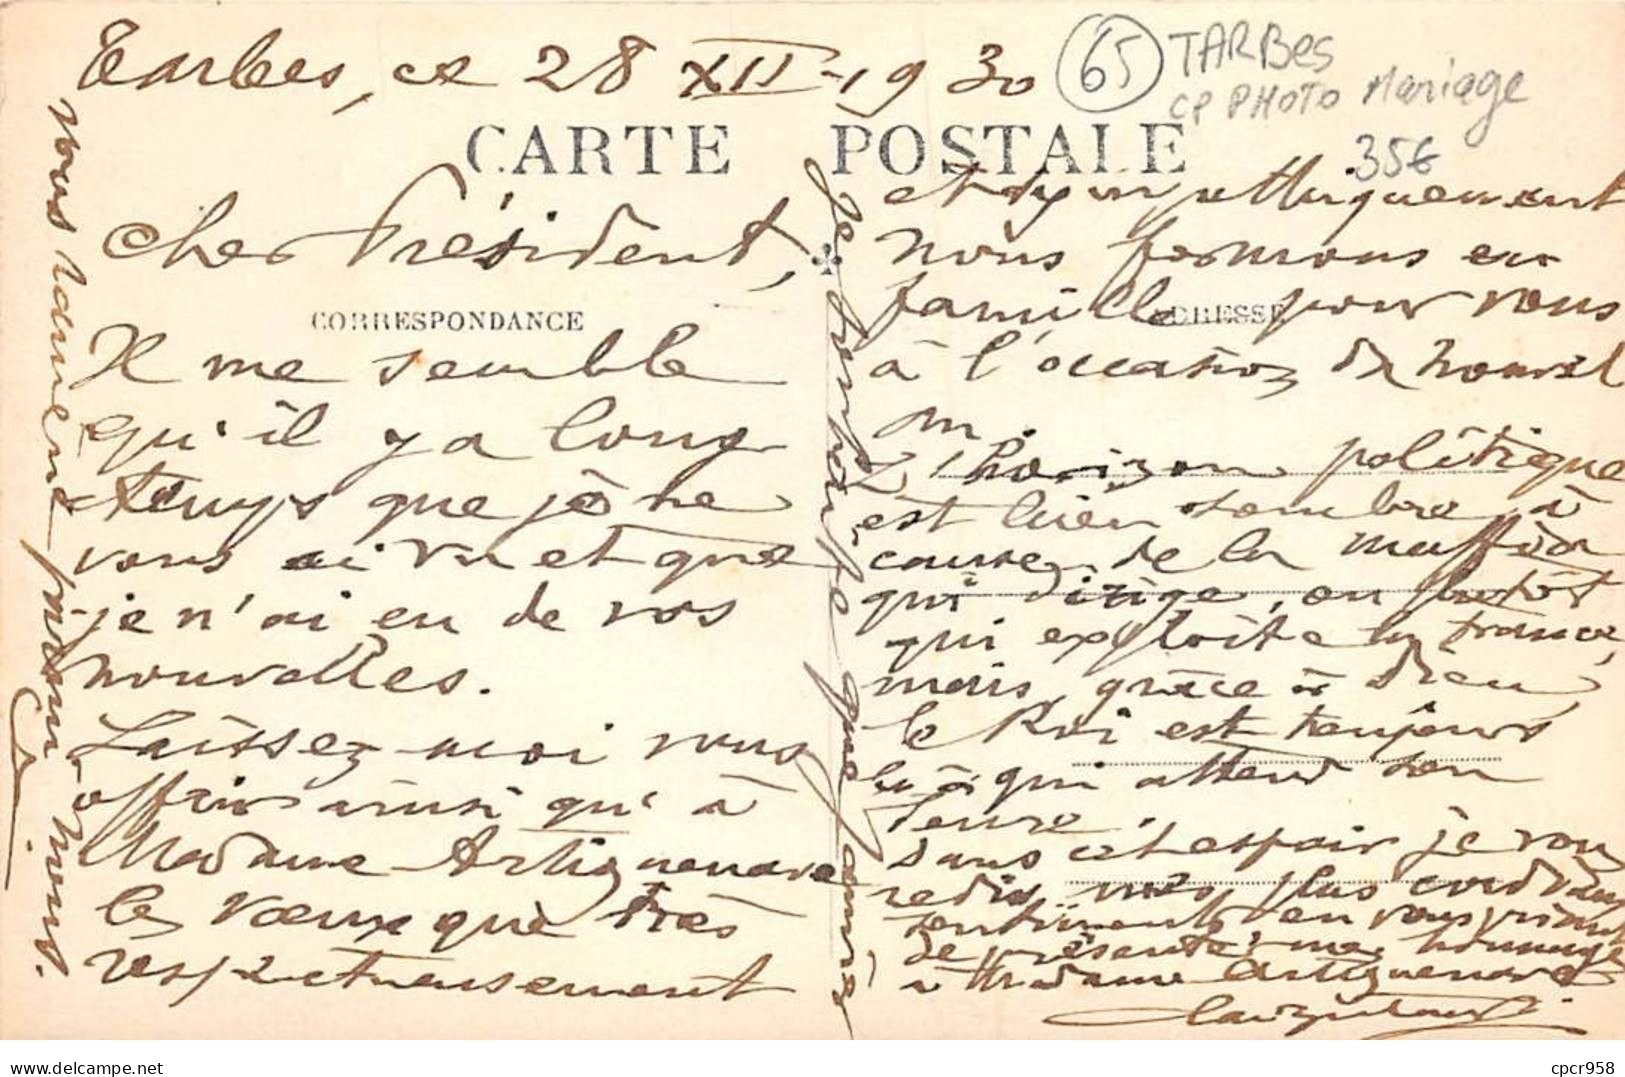 Tarbes, ce 28 XII-1930
65 TARBes
CP PHOTO Mariage
35€
CARTE POSTALE
CORRESPONDANCE
ADRESSE
Cher Président,
Il me semble
qu'il y a long
temps que je ne
vous ai vu et que
je n'ai eu de vos
nouvelles.
Laissez-moi vous
offrir ainsi qu'à
Madame Artiguenave
les vœux que très
respectueusement
et sympathiquement
nous formons en
famille pour vous
à l'occasion du nouvel
an.
L'horizon politique
est bien sombre à
cause de la maffia
qui dirige, ou plutôt
qui exploite la France,
mais, grâce à Dieu,
le Roi est toujours
là qui attend son
heure
sans cet espoir je vous
redis mes plus cordiaux
sentiments en vous priant
de présenter mes hommages
à Madame Artiguenave
Je triomphe que jamais
vous ramène parmi nous.
cpcr958